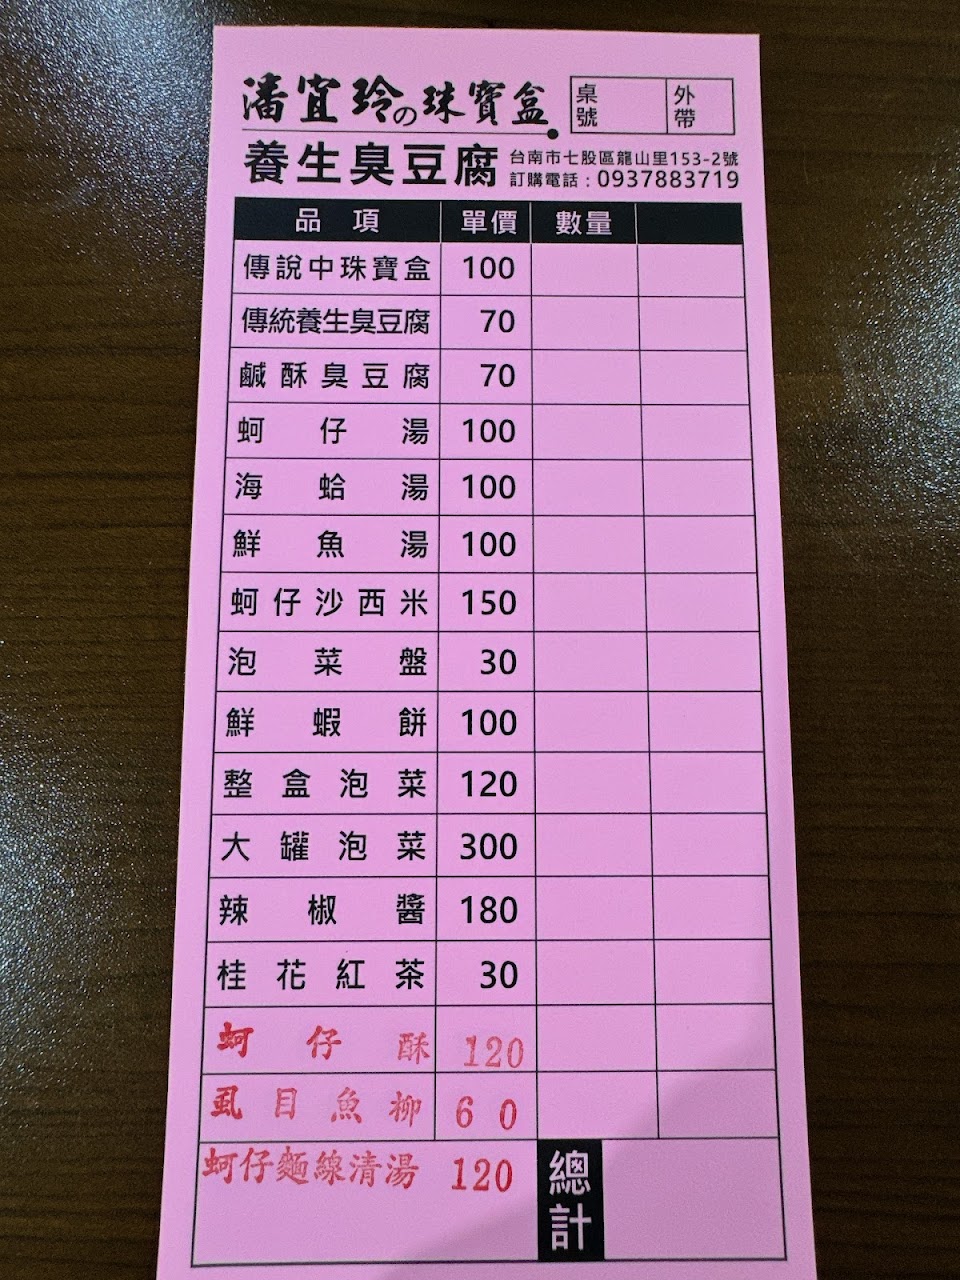 潘宜玲の珠寶盒
桌號 外帶
養生臭豆腐
台南市七股區龍山里153-2號
訂購電話：0937883719
品項 單價 數量
傳說中珠寶盒 100
傳統養生臭豆腐 70
鹹酥臭豆腐 70
蚵仔湯 100
海蛤湯 100
鮮魚湯 100
蚵仔沙西米 150
泡菜盤 30
鮮蝦餅 100
整盒泡菜 120
大罐泡菜 300
辣椒醬 180
桂花紅茶 30
蚵仔酥 120
虱目魚柳 60
蚵仔麵線清湯 120
總計